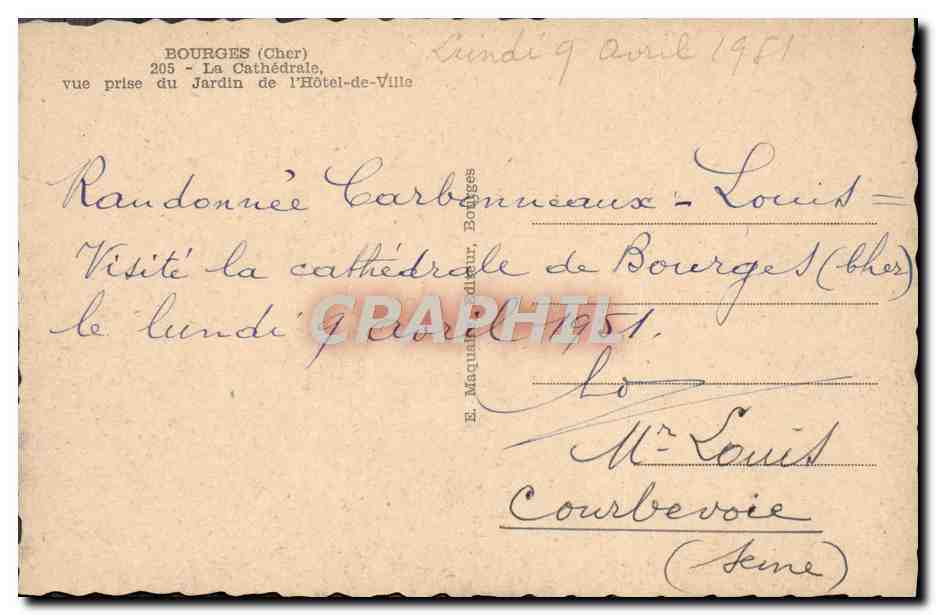 BOURGES (Cher)
205 - La Cathédrale,
vue prise du Jardin de l'Hôtel-de-Ville
Lundi 9 avril 1951
Randonnée Carbonneaux - Louis =
Visité la cathédrale de Bourges (Cher)
le lundi 9 avril 1951.
E. Maquaire, Editeur, Bourges
CPAPHIL
Mr Louis
Courbevoie
(Seine)